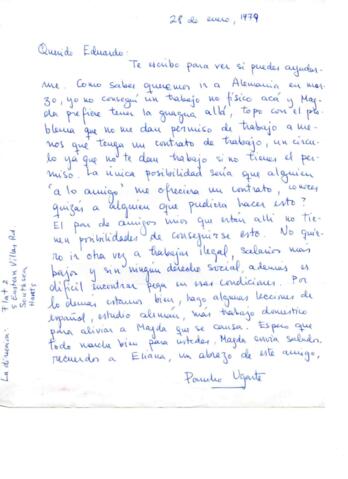 28 de enero, 1979
Querido Eduardo:
Te escribo para ver si puedes ayudar-
me. Como sabes queremos ir a Alemania en mar-
zo, yo no conseguí un trabajo no físico acá y Mag-
da prefiere tener la guagua allá, topo con el pro-
blema que no me dan permiso de trabajo a me-
nos que tenga un contrato de trabajo, un círcu-
lo ya que no te dan trabajo si no tienes el per-
miso. La única posibilidad sería que alguien
"a lo amigo" me ofreciera un contrato, conoces
quizás a alguien que pudiera hacer esto?
El par de amigos míos que están allí no tie-
nen posibilidades de conseguirse esto. No quie-
ro ir otra vez a trabajar ilegal, salarios más
bajos y sin ningún derecho social, además es
difícil encontrar pega en esas condiciones. Por
lo demás estamos bien, hago algunas lecciones de
español, estudio alemán, más trabajo doméstico
para aliviar a Magda que se cansa. Espero que
todo marche bien para ustedes, Magda envía saludos,
recuerdos a Eliana, un abrazo de este amigo,
Pancho Ugarte
La dirección:
Flat 2
5 Eastern Villas Rd
Southsea
Hants